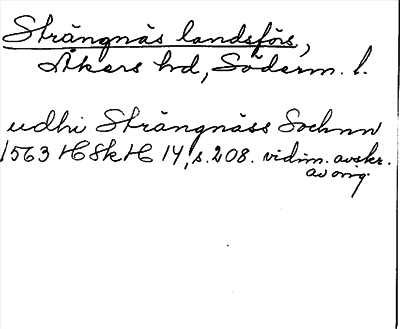 Strängnäs landsförs,
Åkers hd, Söderm. l.
udhi Strängnäss Sochnn
1563 HSkH 14, s. 208. vidim. avskr.
av orig.